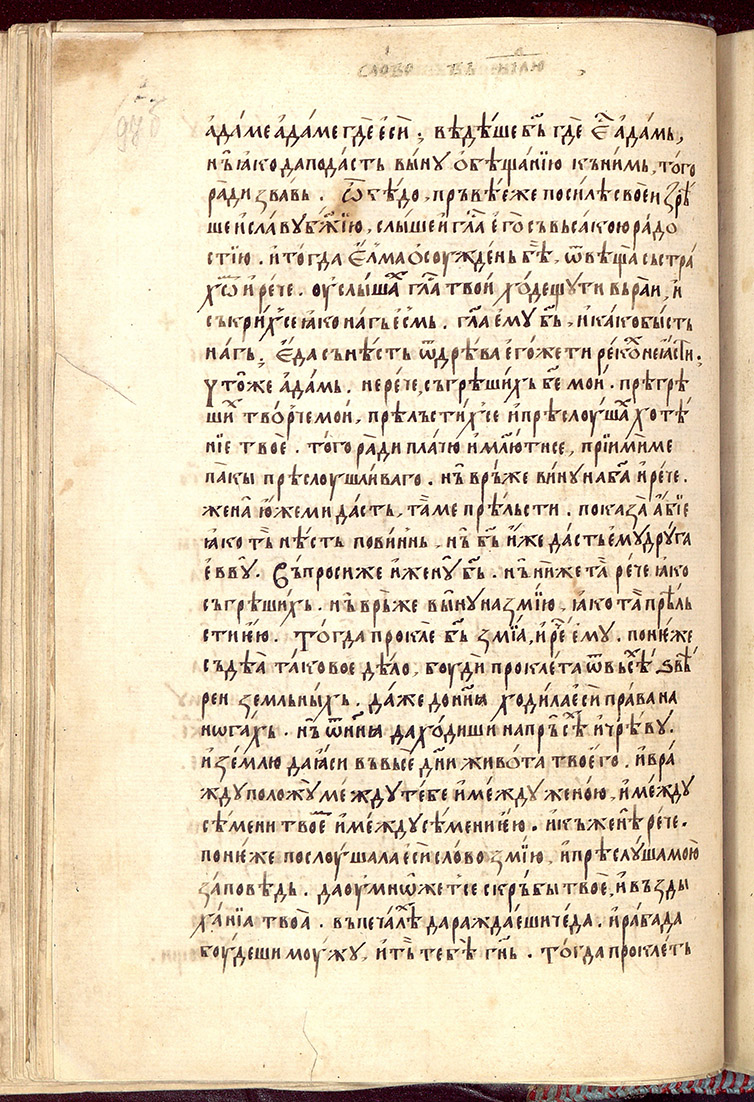 слово въ н҃лю
97б
адаме адаме где еси; ведѣше бь҃ где е҃ адамь,
нь҃ ꙗко да подасть вь҃ину обѣщанїю къ нимь, того
ради звавь. ѿкѣдо, пръвѣеже по силѣ своеи зрѣ
ше и славу бж҃їю, слыше и гл҃а его съ вьсакою радо
стїю. и тогда елма осоужденъ бѣ, ѿвѣща съ стра
хѡ҃ и рече. оуслыша҃х гл҃а твои ходещу ти вь раи, и
съкрих҃се ꙗко нагь есмь. гл҃а ему бь҃, и како бысть
нагь; Еда сънѣсть ѿ дрѣва егоже ти реко҃х не ꙗсти.
Ѹтоже адамь. не рече, съгрѣшихь бе҃ мои. прѣгрѣ
ши҃х творче мои, прѣльстих҃се и прѣслоуша҃х хотѣ
нїе твое. того ради плачю и мл҃ютисе, прїимѝме
пакы прѣслоушливаго. нь҃ врьже вину на ба҃ и рече.
жена юже ми дасть, та ме прѣльсти. показа абїе
ꙗко ть҃ нѣсть повиннь, нь҃ бь҃ иже дасть ему друга
еввꙋ. Съпроси же и женꙋ бь҃. нь҃ ниже та рече ꙗко
съгрѣшихь. нь҃ врьже вь҃ину на змїю, ꙗко та прѣль
сти ю. Тогда прокле бь҃ змїа, и ре҃ч ему. понеже
съдѣа таковое дѣло, боуди проклета ѿ вьсѣ҃х звѣ
реи земльныхь. даже до нн҃ꙗ ходила еси права на
ногахь. нь҃ ѿ нн҃ꙗ да ходиши на прь҃сѣ҃х и чрѣву.
и землю да ꙗси въ вьсе дн҃и живота твоего. и вра
жду положꙋ между тебе и между женою, и между
сѣмени твое҃ и между сѣмени ею. и къ женѣ рече.
понеже послоушала еси слово змїю, и прѣслꙋша мою
заповѣдь. да оумнѡжетсе скръбы твое, и въззды
ханїа твоа. въ печале҃х да раждаеши чеда. и раба да
боудеши моужу, и ть҃ тебѣ гн҃ь. Тогда проклеть